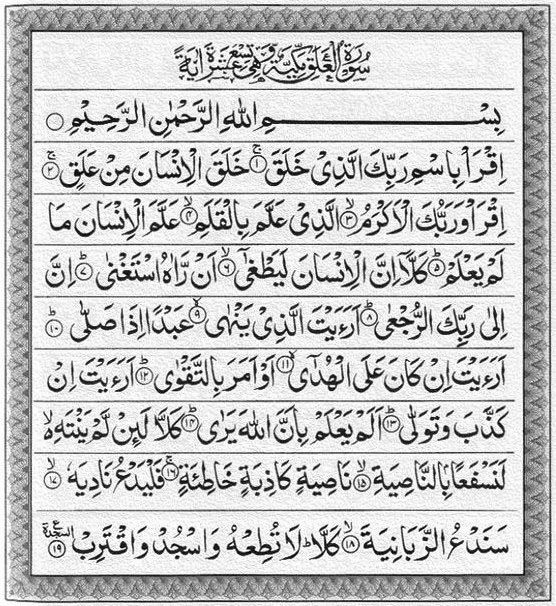 سُوْرَةُ الْعَلَقِ مَكِّيَّةٌ وَّهِىَ تِسْعَ عَشْرَةَ اٰيَةً
بِسْمِ اللّٰهِ الرَّحْمٰنِ الرَّحِيْمِ ○
اِقْرَاْ بِاسْمِ رَبِّكَ الَّذِىْ خَلَقَ ۚ‏﴿۱﴾ خَلَقَ الْاِنْسَانَ مِنْ عَلَقٍ ۚ‏﴿۲﴾
اِقْرَاْ وَرَبُّكَ الْاَكْرَمُ ۙ‏﴿۳﴾ الَّذِىْ عَلَّمَ بِالْقَلَمِ ۙ‏﴿۴﴾ عَلَّمَ الْاِنْسَانَ مَا
لَمْ يَعْلَمْ ؕ‏﴿۵﴾ كَلَّاۤ اِنَّ الْاِنْسَانَ لَيَطْغٰٓى ۙ‏﴿۶﴾ اَنْ رَّاٰهُ اسْتَغْنٰى ؕ‏﴿۷﴾ اِنَّ
اِلٰى رَبِّكَ الرُّجْعٰى ؕ‏﴿۸﴾ اَرَءَيْتَ الَّذِىْ يَنْهٰى ۙ‏﴿۹﴾ عَبْدًا اِذَا صَلّٰى ؕ‏﴿۱۰﴾
اَرَءَيْتَ اِنْ كَانَ عَلَى الْهُدٰٓى ۙ‏﴿۱۱﴾ اَوْ اَمَرَ بِالتَّقْوٰى ؕ‏﴿۱۲﴾ اَرَءَيْتَ اِنْ
كَذَّبَ وَتَوَلّٰى ؕ‏﴿۱۳﴾ اَلَمْ يَعْلَمْ بِاَنَّ اللّٰهَ يَرٰى ؕ‏﴿۱۴﴾ كَلَّا لَئِنْ لَّمْ يَنْتَهِ ۙ
لَنَسْفَعًا بِالنَّاصِيَةِ ۙ‏﴿۱۵﴾ نَاصِيَةٍ كَاذِبَةٍ خَاطِئَةٍ ۚ‏﴿۱۶﴾ فَلْيَدْعُ نَادِيَهٗ ۙ‏﴿۱۷﴾
سَنَدْعُ الزَّبَانِيَةَ ۙ‏﴿۱۸﴾ كَلَّا ؕ لَا تُطِعْهُ وَاسْجُدْ وَاقْتَرِبْ ﴿۱۹﴾ السجدة ع